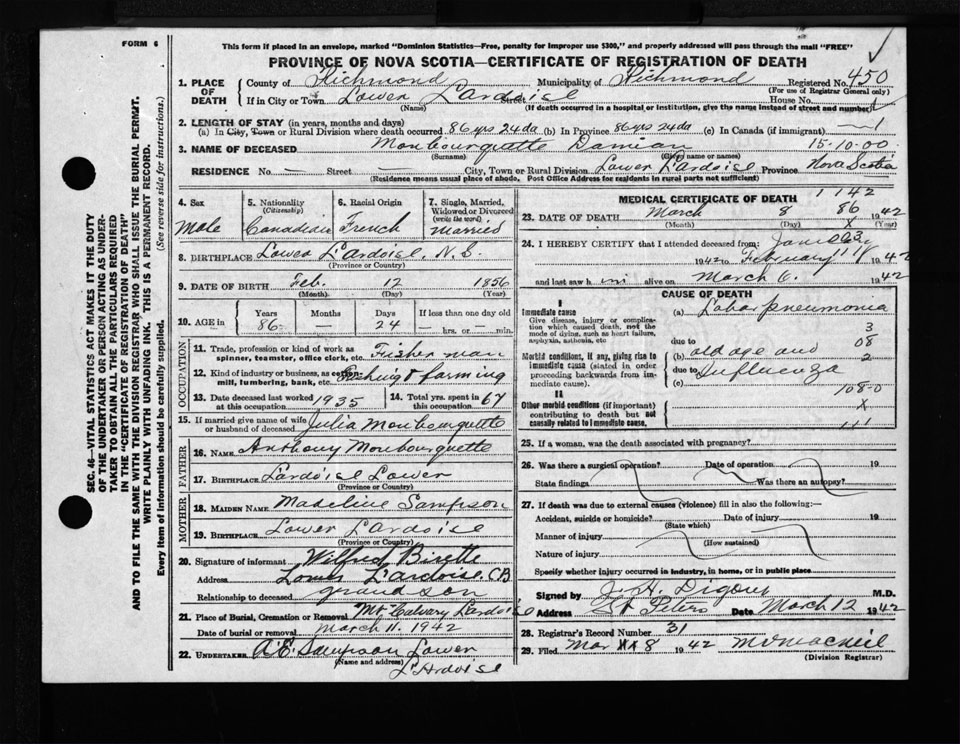 FORM 6
This form if placed in an envelope, marked "Dominion Statistics—Free, penalty for improper use $300," and properly addressed will pass through the mail "FREE"
PROVINCE OF NOVA SCOTIA—CERTIFICATE OF REGISTRATION OF DEATH
SEC. 46—VITAL STATISTICS ACT MAKES IT THE DUTY
OF THE UNDERTAKER OR PERSON ACTING AS UNDER-
TAKER TO OBTAIN ALL THE PARTICULARS REQUIRED
IN THE "CERTIFICATE OF REGISTRATION OF DEATH"
AND TO FILE THE SAME WITH THE DIVISION REGISTRAR WHO SHALL ISSUE THE BURIAL PERMIT.
WRITE PLAINLY WITH UNFADING INK. THIS IS A PERMANENT RECORD.
Every item of information should be carefully supplied. (See reverse side for instructions.)
1. PLACE OF DEATH County of Richmond Municipality of Richmond Registered No. 450
(For use of Registrar General only)
If in City or Town Lower L'Ardoise Street House No.
(Name) (If death occurred in a hospital or institution, give the name instead of street and number)
2. LENGTH OF STAY (in years, months and days)
(a) In City, Town or Rural Division where death occurred 86 yrs 24 da (b) In Province 86 yrs 24 da (c) In Canada (if immigrant)
3. NAME OF DECEASED Monbourquette Damian 15-10-00
(Surname) (Given name or names)
RESIDENCE No. — Street City, Town or Rural Division Lower L'Ardoise Province Nova Scotia
(Residence means usual place of abode. Post Office Address for residents in rural parts not sufficient)
4. Sex Male
5. Nationality (Citizenship) Canadian
6. Racial Origin French
7. Single, Married, Widowed or Divorced (write the word) Married
8. BIRTHPLACE Lower L'Ardoise, N.S.
(Province or Country)
9. DATE OF BIRTH Feb. 12 1856
(Month) (Day) (Year)
10. AGE in Years Months Days If less than one day old
86 — 24 hrs. or min.
OCCUPATION
11. Trade, profession or kind of work as spinner, teamster, office clerk, etc. Fisherman
12. Kind of industry or business, as cotton-mill, lumbering, bank, etc. Fishing & farming
13. Date deceased last worked at this occupation 1935 14. Total yrs. spent in this occupation 67
15. If married give name of wife or husband of deceased Julia Monbourquette
FATHER
16. NAME Anthony Monbourquette
17. BIRTHPLACE Lardoise Lower
(Province or Country)
MOTHER
18. MAIDEN NAME Madeline Sampson
19. BIRTHPLACE Lower L'Ardoise
(Province or Country)
20. Signature of informant Wilfred
Address Lower L'Ardoise C.B
Relationship to deceased grandson
21. Place of Burial, Cremation or Removal Mt Calvary Lardoise
Date of burial or removal March 11. 1942
22. UNDERTAKER A.E. Sampson Lower
(Name and address) L'Ardoise
MEDICAL CERTIFICATE OF DEATH 1142
23. DATE OF DEATH March 8 86 1942
(Month) (Day) (Year)
24. I HEREBY CERTIFY that I attended deceased from:
1942 to February 1942
and last saw h im alive on March 6. 1942
CAUSE OF DEATH
I
Immediate cause
Give disease, injury or complication which caused death, not the mode of dying, such as heart failure, asphyxia, asthenia, etc
(a) Lobar pneumonia
3
due to 08
Morbid conditions, if any, giving rise to immediate cause (stated in order proceeding backwards from immediate cause).
(b) old age and 2
due to Influenza
(c)
108-0
II
Other morbid conditions (if important) contributing to death but not causally related to immediate cause.
X
111
25. If a woman, was the death associated with pregnancy?
26. Was there a surgical operation? Date of operation 19
State findings Was there an autopsy?
27. If death was due to external causes (violence) fill in also the following:
Accident, suicide or homicide? Date of injury 19
(State which)
Manner of injury
(How sustained)
Nature of injury
Specify whether injury occurred in industry, in home, or in public place
Signed by J. H. Digout M.D.
Address St Peters Date March 12 1942
28. Registrar's Record Number 31
29. Filed Mar 8 1942
(Division Registrar)